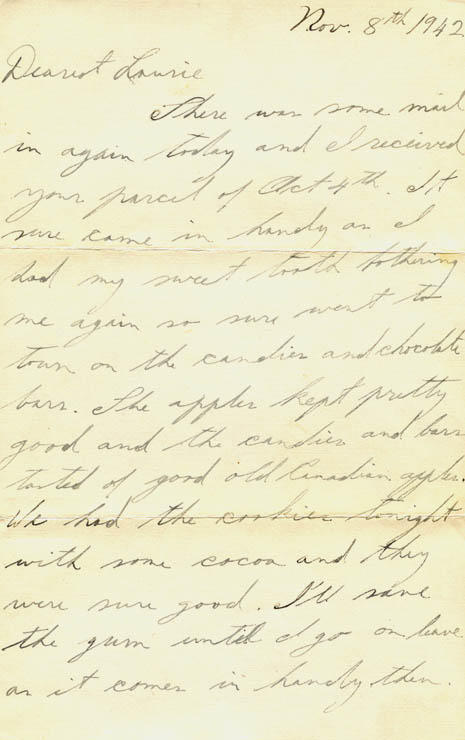 Nov. 8th 1942
Dearest Laurie
There was some mail
in again today and I received
your parcel of Oct 4th. It
sure came in handy as I
had my sweet tooth bothering
me again so sure went to
town on the candies and chocolate
bars. The apples kept pretty
good and the candies and bars
tasted of good old Canadian apples.
We had the cookies tonight
with some cocoa and they
were sure good. I'll save
the gum until I go on leave
as it comes in handy then.